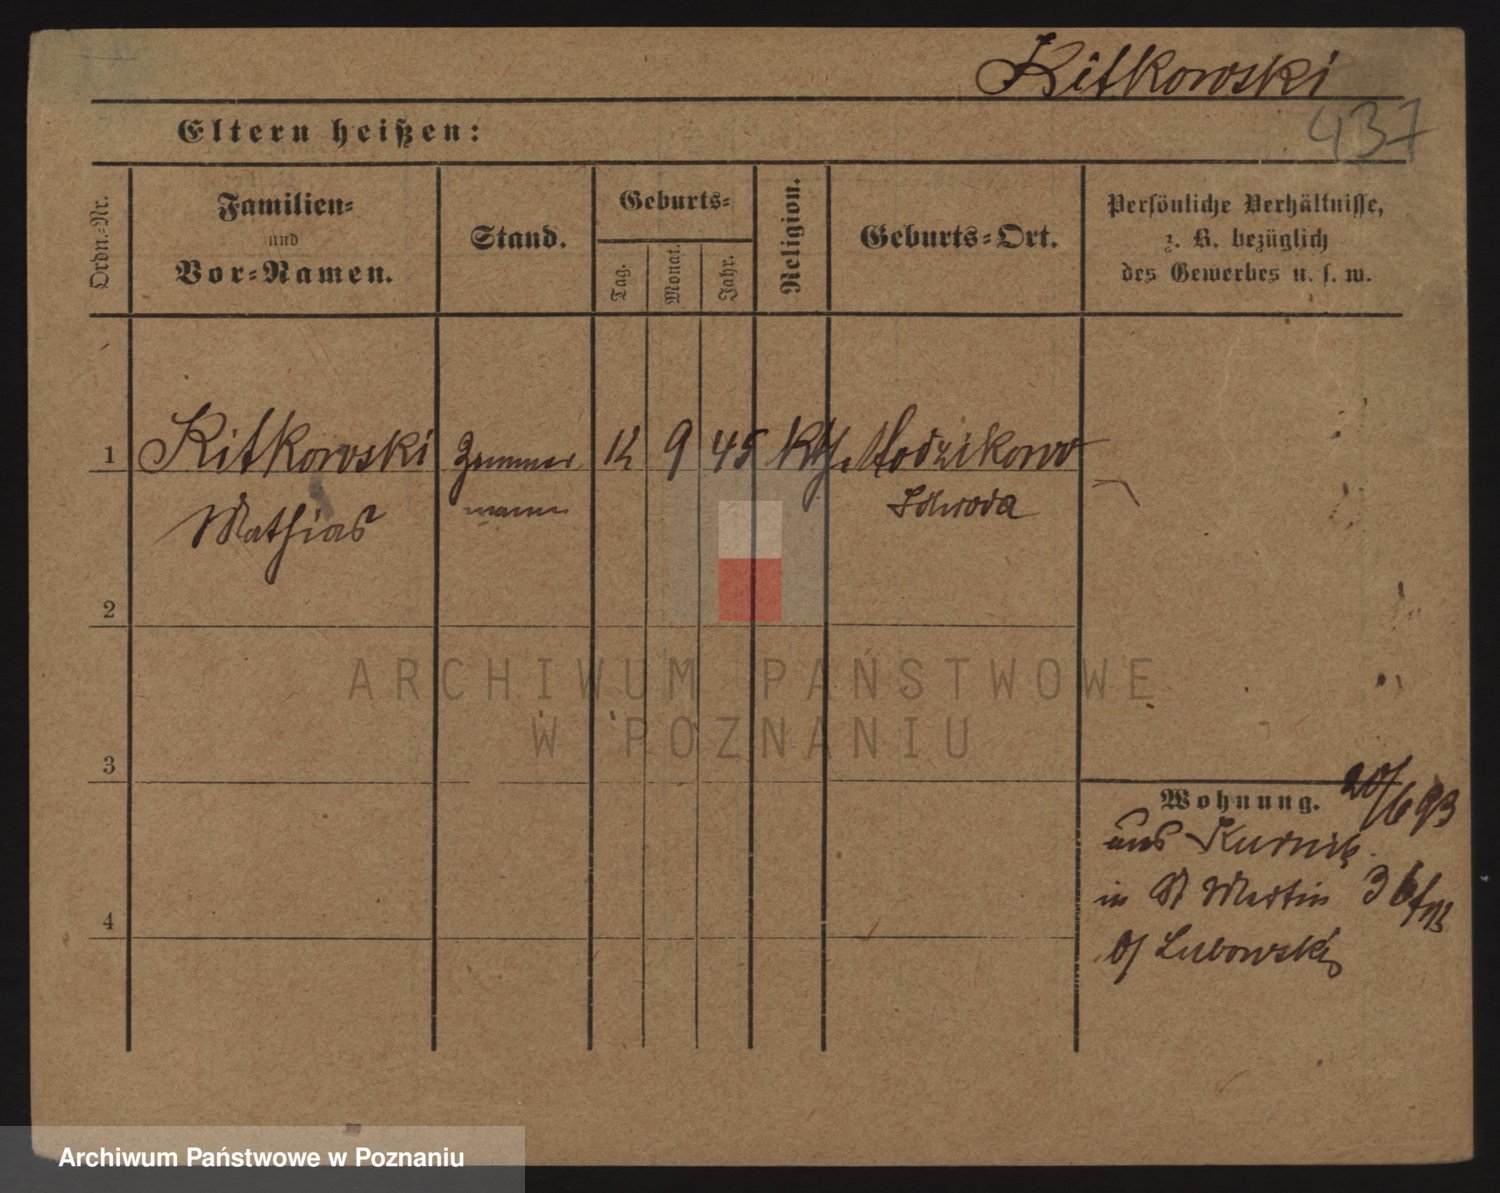 Kitkowski
437
Eltern heißen:
Ordn.-Nr.
Familien-
und
Vor-Namen.
Stand.
Geburts-
Tag.
Monat.
Jahr.
Religion.
Geburts-Ort.
Persönliche Verhältnisse,
z. B. bezüglich
des Gewerbes u. s. w.
1 Kitkowski Zimmer 12 9 45 Kth.
mann
Mathias Schroda
2
3
4
Wohnung. 20/6 93
aus Kurnik
in St Martin 36
b/ Lubowski
ARCHIWUM PAŃSTWOWE
W POZNANIU
Archiwum Państwowe w Poznaniu